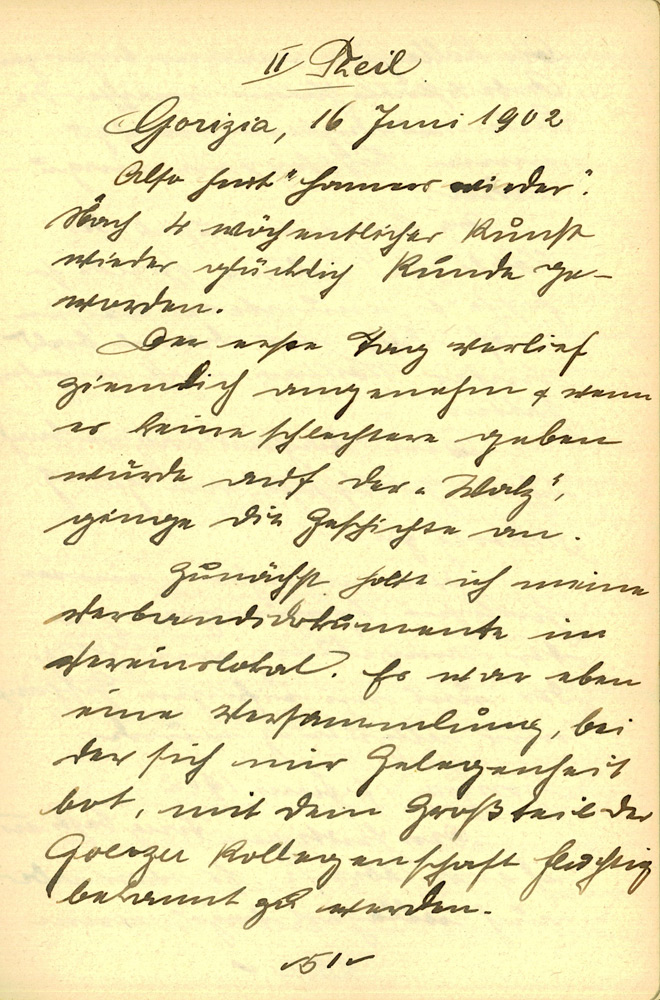 II Theil
Gorizia, 16 Juni 1902
Also heut "hamers wieder".
Nach 4 wöchentlicher Kunst
wieder glücklich Kunde ge-
worden.
Der erste Tag verlief
ziemlich angenehm & wenn
es keine schlechtere geben
würde auf der "Walz",
ginge die Geschichte an.
Zunächst holte ich meine
Verbandsdokumente im
Vereinslokal. Es war eben
eine Versammlung, bei
der sich mir Gelegenheit
bot, mit dem Großteil der
Görzer Kollegenschaft flüchtig
bekannt zu werden.
51